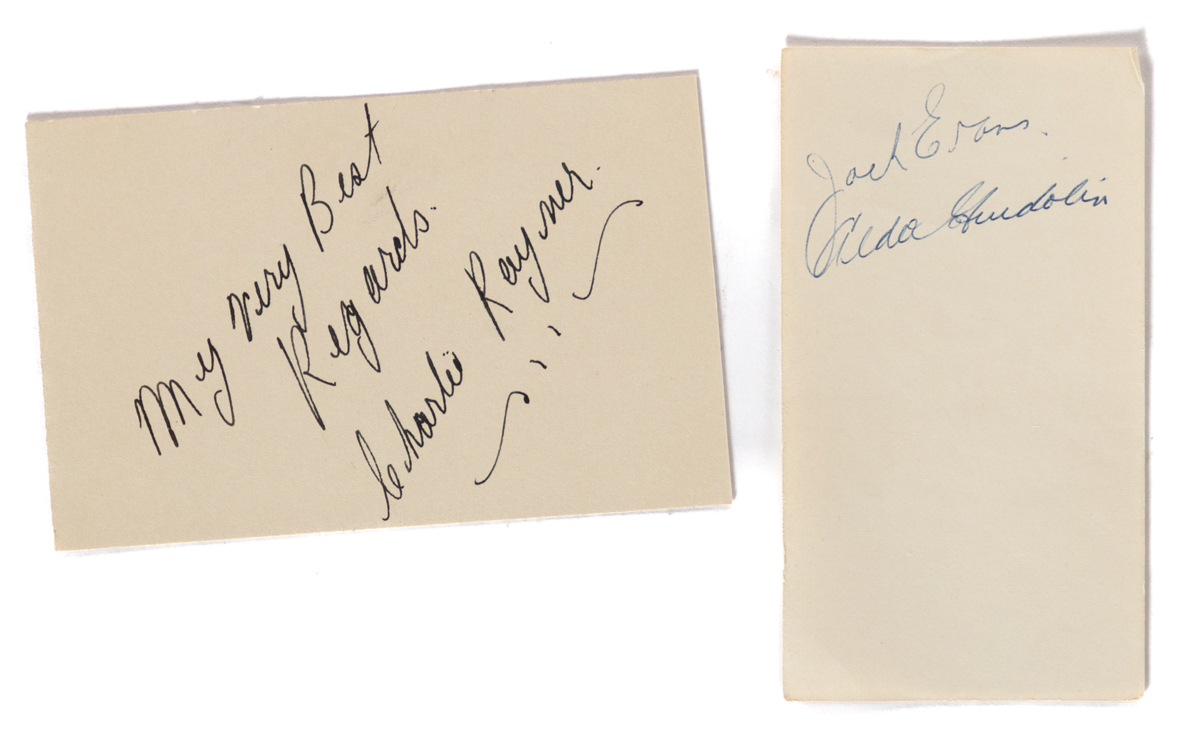 My very Best
Regards.
Charlie Rayner.
Jack Evans.
Hilda